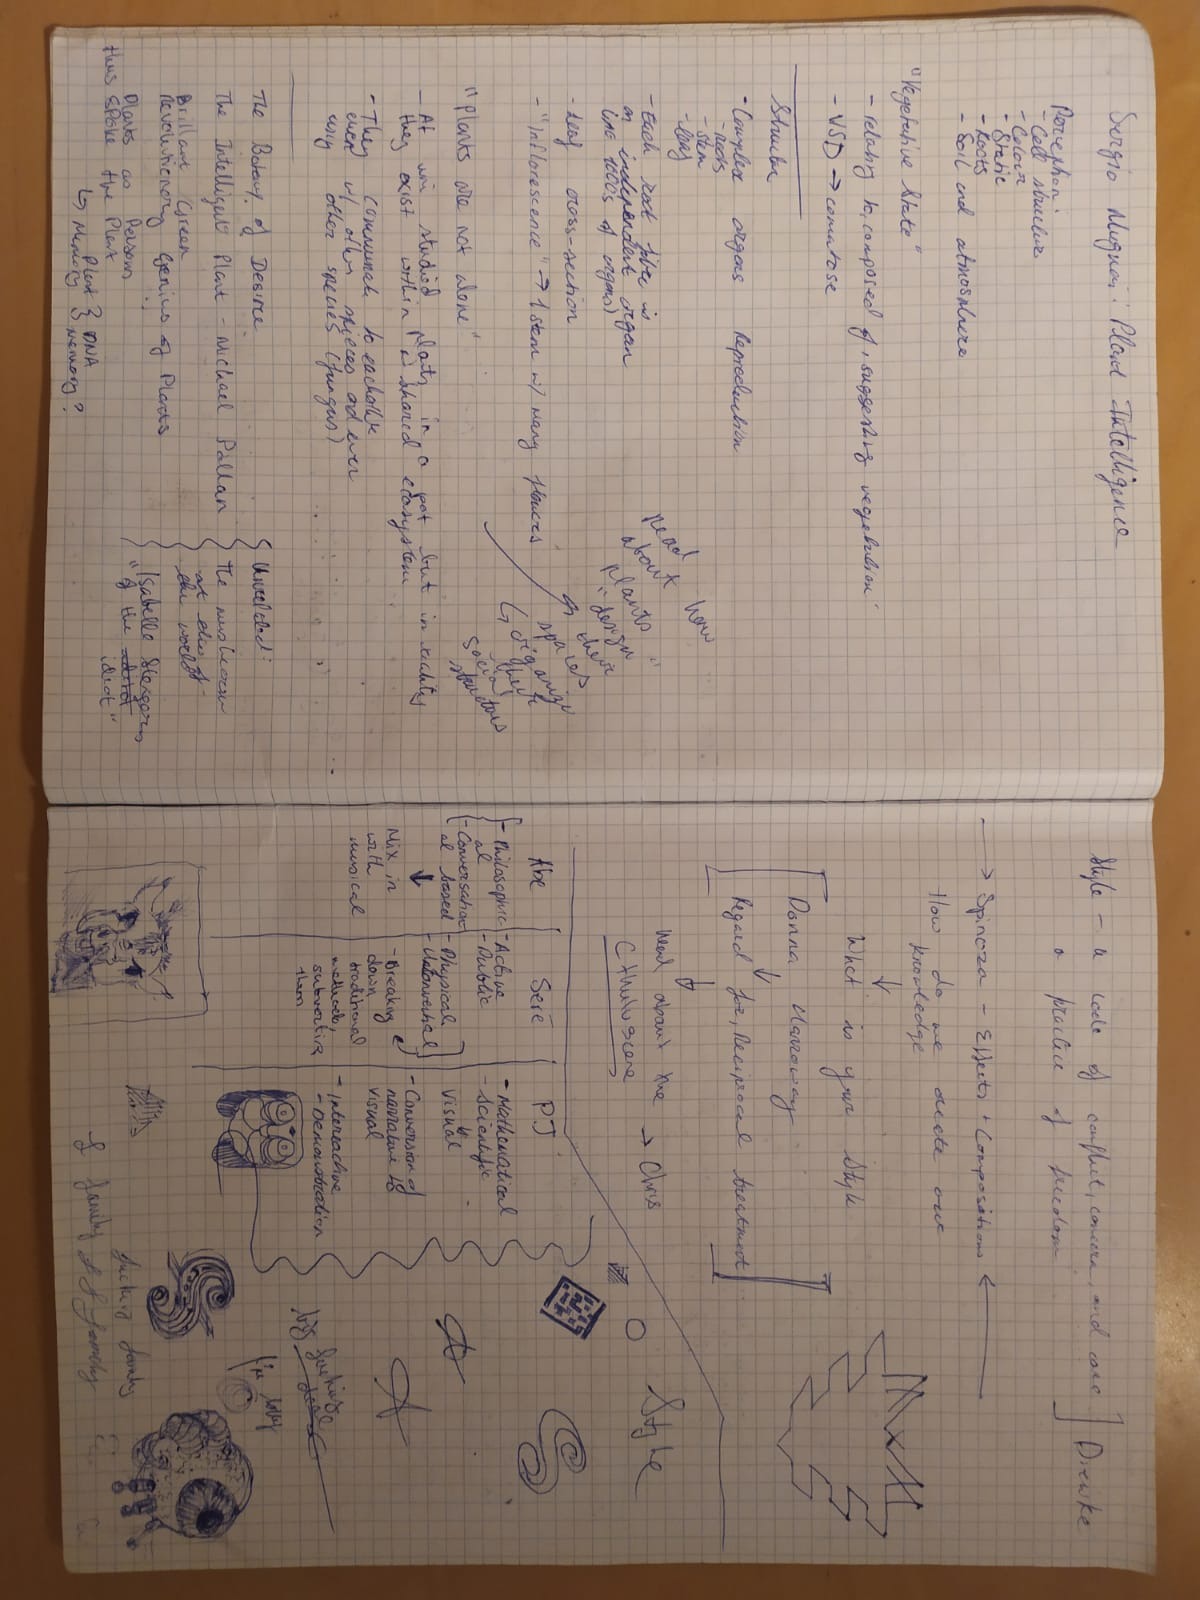 Sergio Mugnai: Plant Intelligence
Perception:
- Cell structure
- Colour
- Static
- Roots
- Soil and atmosphere
"Vegetative State"
- relating to, composed of, suggesting vegetation
- VSD → comatose
Structur
- Complex organs Reproduction
- roots
- stem
- leaf
- Each root fibre is
an independent organ
1000's of organs)
- Leaf cross-section
- "Inflorescence" → 1 stem w/ many flowers
Read
about how
plants
"design"
their
spaces
↳ organize
their
social
structurs
"Plants are not alone"
- At uni studied plants in a pot but in reality
they exist within a shared ecosystem
- They communate to eachother
even w/ other spieces and even
using other species (fungus)
The Botany of Desire
The Intelligent Plant - Michael Pollan
Brillant Green
Revolutionary Genius of Plants
Plants as Persons
thus Spoke the Plant
↳ Plant } DNA
Memory } memory?
Unrelated:
The mushroom
at the
the world
Isabelle Stengers
"of the
idiot"
Style - a code of conflict, concern, and care
a practice of freedom
Drewke
→ Spinoza - Effects + Compositions ←
How do we create our
knowledge
↓
What is your Style
Donna Harroway
↓
Regard for, Reciprocal treatment
↓
Read about the → Chris
Cthuluscene
Style
Abe
- Philosophic
al
- Conversation
al based
↓
Mix in
with
musical
Seré
- Active
- Public
- Physical
- Unconverbal
- Breaking
down
traditional
methods,
subverting
them
PJ
- Mathematical
- Scientific
↓
Visual
- Conversion of
narrative to
visual
- Intereactive
- Demonstration
big fucking
deal
fucking family
f family f f family